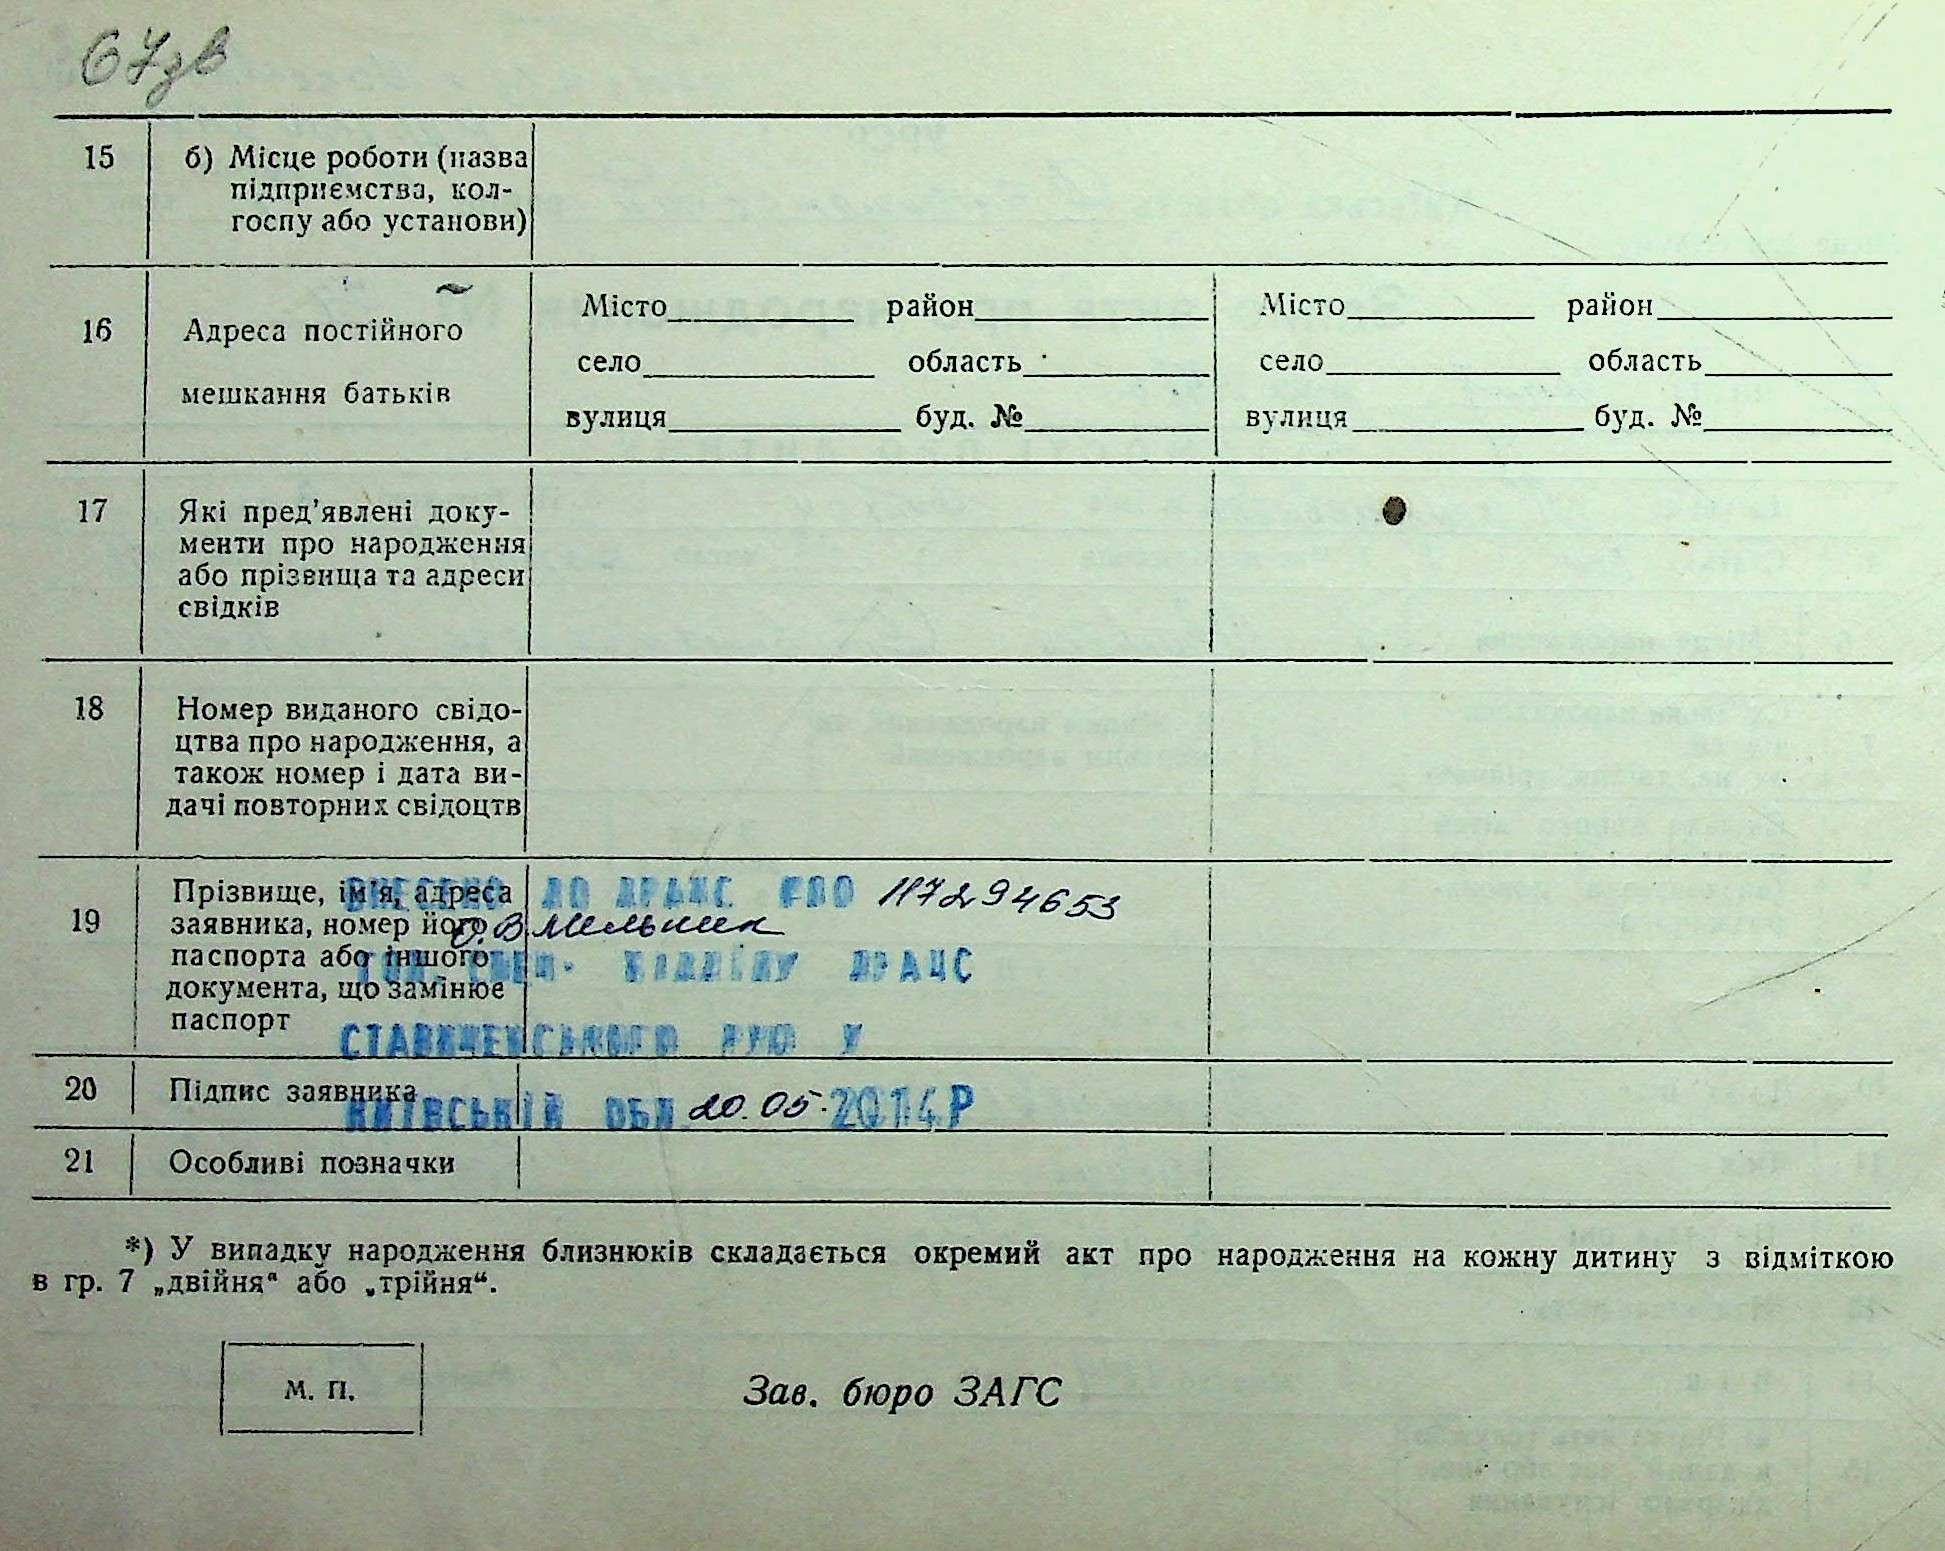 67зв
15 б) Місце роботи (назва
підприємства, кол-
госпу або установи)
16 Адреса постійного
мешкання батьків
Місто район
село область
вулиця буд. №
Місто район
село область
вулиця буд. №
17 Які пред’явлені доку-
менти про народження
або прізвища та адреси
свідків
18 Номер виданого свідо-
цтва про народження, а
також номер і дата ви-
дачі повторних свідоцтв
19 Прізвище, ім’я, адреса
заявника, номер його
паспорта або іншого
документа, що замінює
паспорт
ВНЕСЕНО ДО ДРАЦС 117294653
О.В. Мельник
ГОЛ. СПЕЦ. ВІДДІЛУ ДРАЦС
СТАВИЩЕНСЬКОГО РУЮ У
КИЇВСЬКІЙ ОБЛ. 20.05.2014Р
20 Підпис заявника
21 Особливі позначки
*) У випадку народження близнюків складається окремий акт про народження на кожну дитину з відміткою
в гр. 7 „двійня“ або „трійня“.
М. П.
Зав. бюро ЗАГС